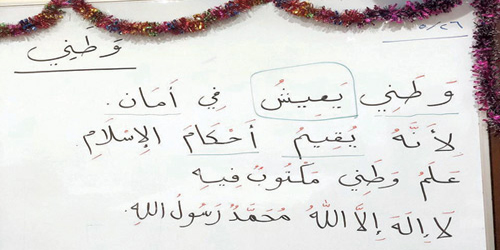 ٥/٢٦
وَطَنِي
وَطَنِي يَعِيشُ فِي أَمَان.
لِأَنَّهُ يُقِيمُ أَحْكَامَ الإِسْلَامِ.
عَلَمُ وَطَنِي مَكْتُوبٌ فِيهِ
لَا إِلَهَ إِلَّا اللهُ مُحَمَّدٌ رَسُولُ اللهِ.